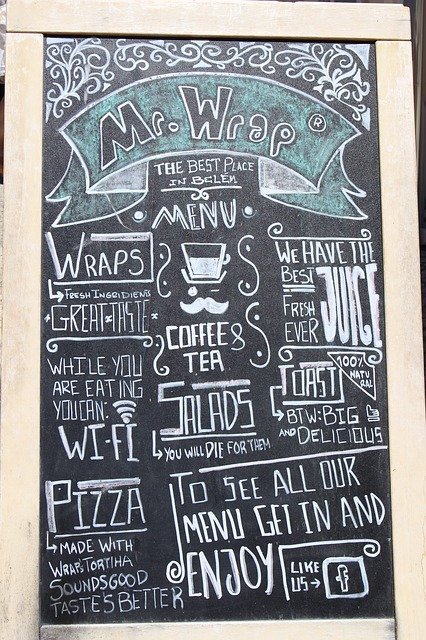 Mr. Wrap ®
THE BEST PLACE
IN BELÉM
MENU
WRAPS
FRESH INGRIDIENTS
GREAT TASTE
COFFEE &
TEA
WE HAVE THE
BEST
JUICE
FRESH
EVER
100%
NATU
RAL
WHILE YOU
ARE EATING
YOU CAN:
WI-FI
SALADS
YOU WILL DIE FOR THEM
TOAST
BTW: BIG
AND DELICIOUS
PIZZA
MADE WITH
WRAPS TORTIHA
SOUNDS GOOD
TASTE'S BETTER
TO SEE ALL OUR
MENU GET IN AND
ENJOY
LIKE
US → f